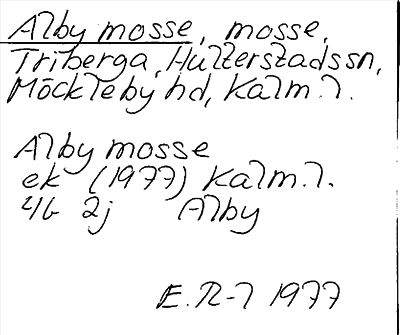 Alby mosse, mosse,
Triberga, Hulterstadssn,
Möckleby hd, Kalm.l.
Alby mosse
ek (1977) Kalm.l.
4G 2j Alby
E.R-l 1977